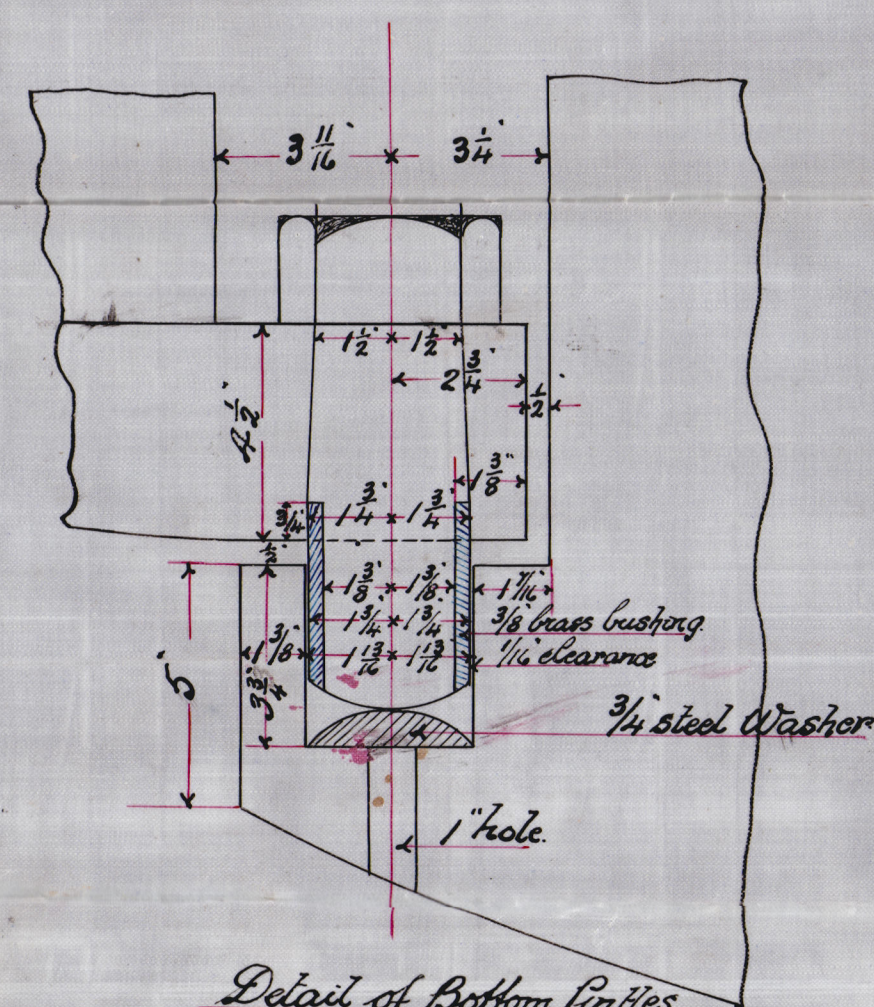 3 11/16" 3 1/4"
1 1/2" 1 1/2"
2 3/4"
1/2"
4 1/2"
1 3/8"
3/4" 1 3/4" 1 3/4"
1/2"
1 3/8" 1 3/8" 1 7/16"
1 3/4" 1 3/4" 3/8" brass bushing.
1 3/8" 1 13/16" 1 13/16" 1/16" clearance
5" 3 3/4"
3/4" steel Washer
1" hole.
Detail of Bottom Pintles